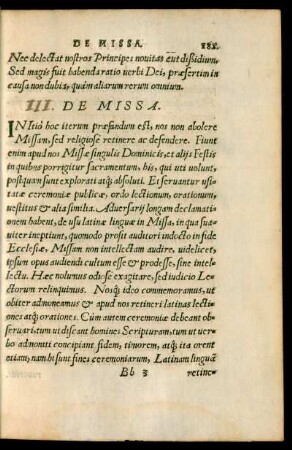 DE MISSA.
Nec delectat nostros Principes nouitas aut dißidium,
Sed magis fuit habenda ratio uerbi Dei, præsertim in
causa non dubia, quàm aliarum rerum omnium.
III. DE MISSA.
INitiò hoc iterum præfandum est, nos non abolere
Missam, sed religiosè retinere ac defendere. Fiunt
enim apud nos Missæ singulis Dominicis, et alijs Festis
in quibus porrigitur sacramentum, his, qui uti uolunt,
postquam sunt explorati atq; absoluti. Et seruantur usi-
tatæ ceremoniæ publicæ, ordo lectionum, orationum,
uestitus & alia similia. Aduersarij longam declamati
onem habent, de usu latinæ linguæ in Missa, in qua sua
uiter ineptiunt, quomodo prosit auditori indocto in fide
Ecclesiæ, Missam non intellectam audire, uidelicet,
ipsum opus audiendi cultum esse & prodesse, sine intel-
lectu. Hæc nolumus odiosè exagitare, sed iudicio Le-
ctorum relinquimus. Nosq; ideo commemoramus, ut
obiter admoneamus & apud nos retineri latinas lecti
ones atq; orationes. Cùm autem ceremoniæ debeant ob-
seruari, tum ut discant homines Scripturam, tum ut uer-
bo admoniti concipiant fidem, timorem, atq; ita orent
etiam, nam hi sunt fines ceremoniarum, Latinam linguã
Bb 3 retine-